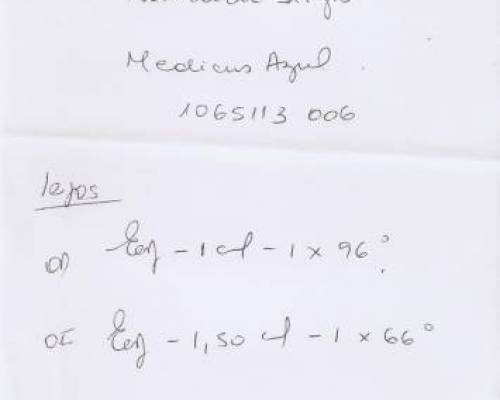 Medicus Azul
1065113 006
lejos
OD Esf - 1 cil - 1 x 96°
OI Esf - 1,50 cil - 1 x 66°